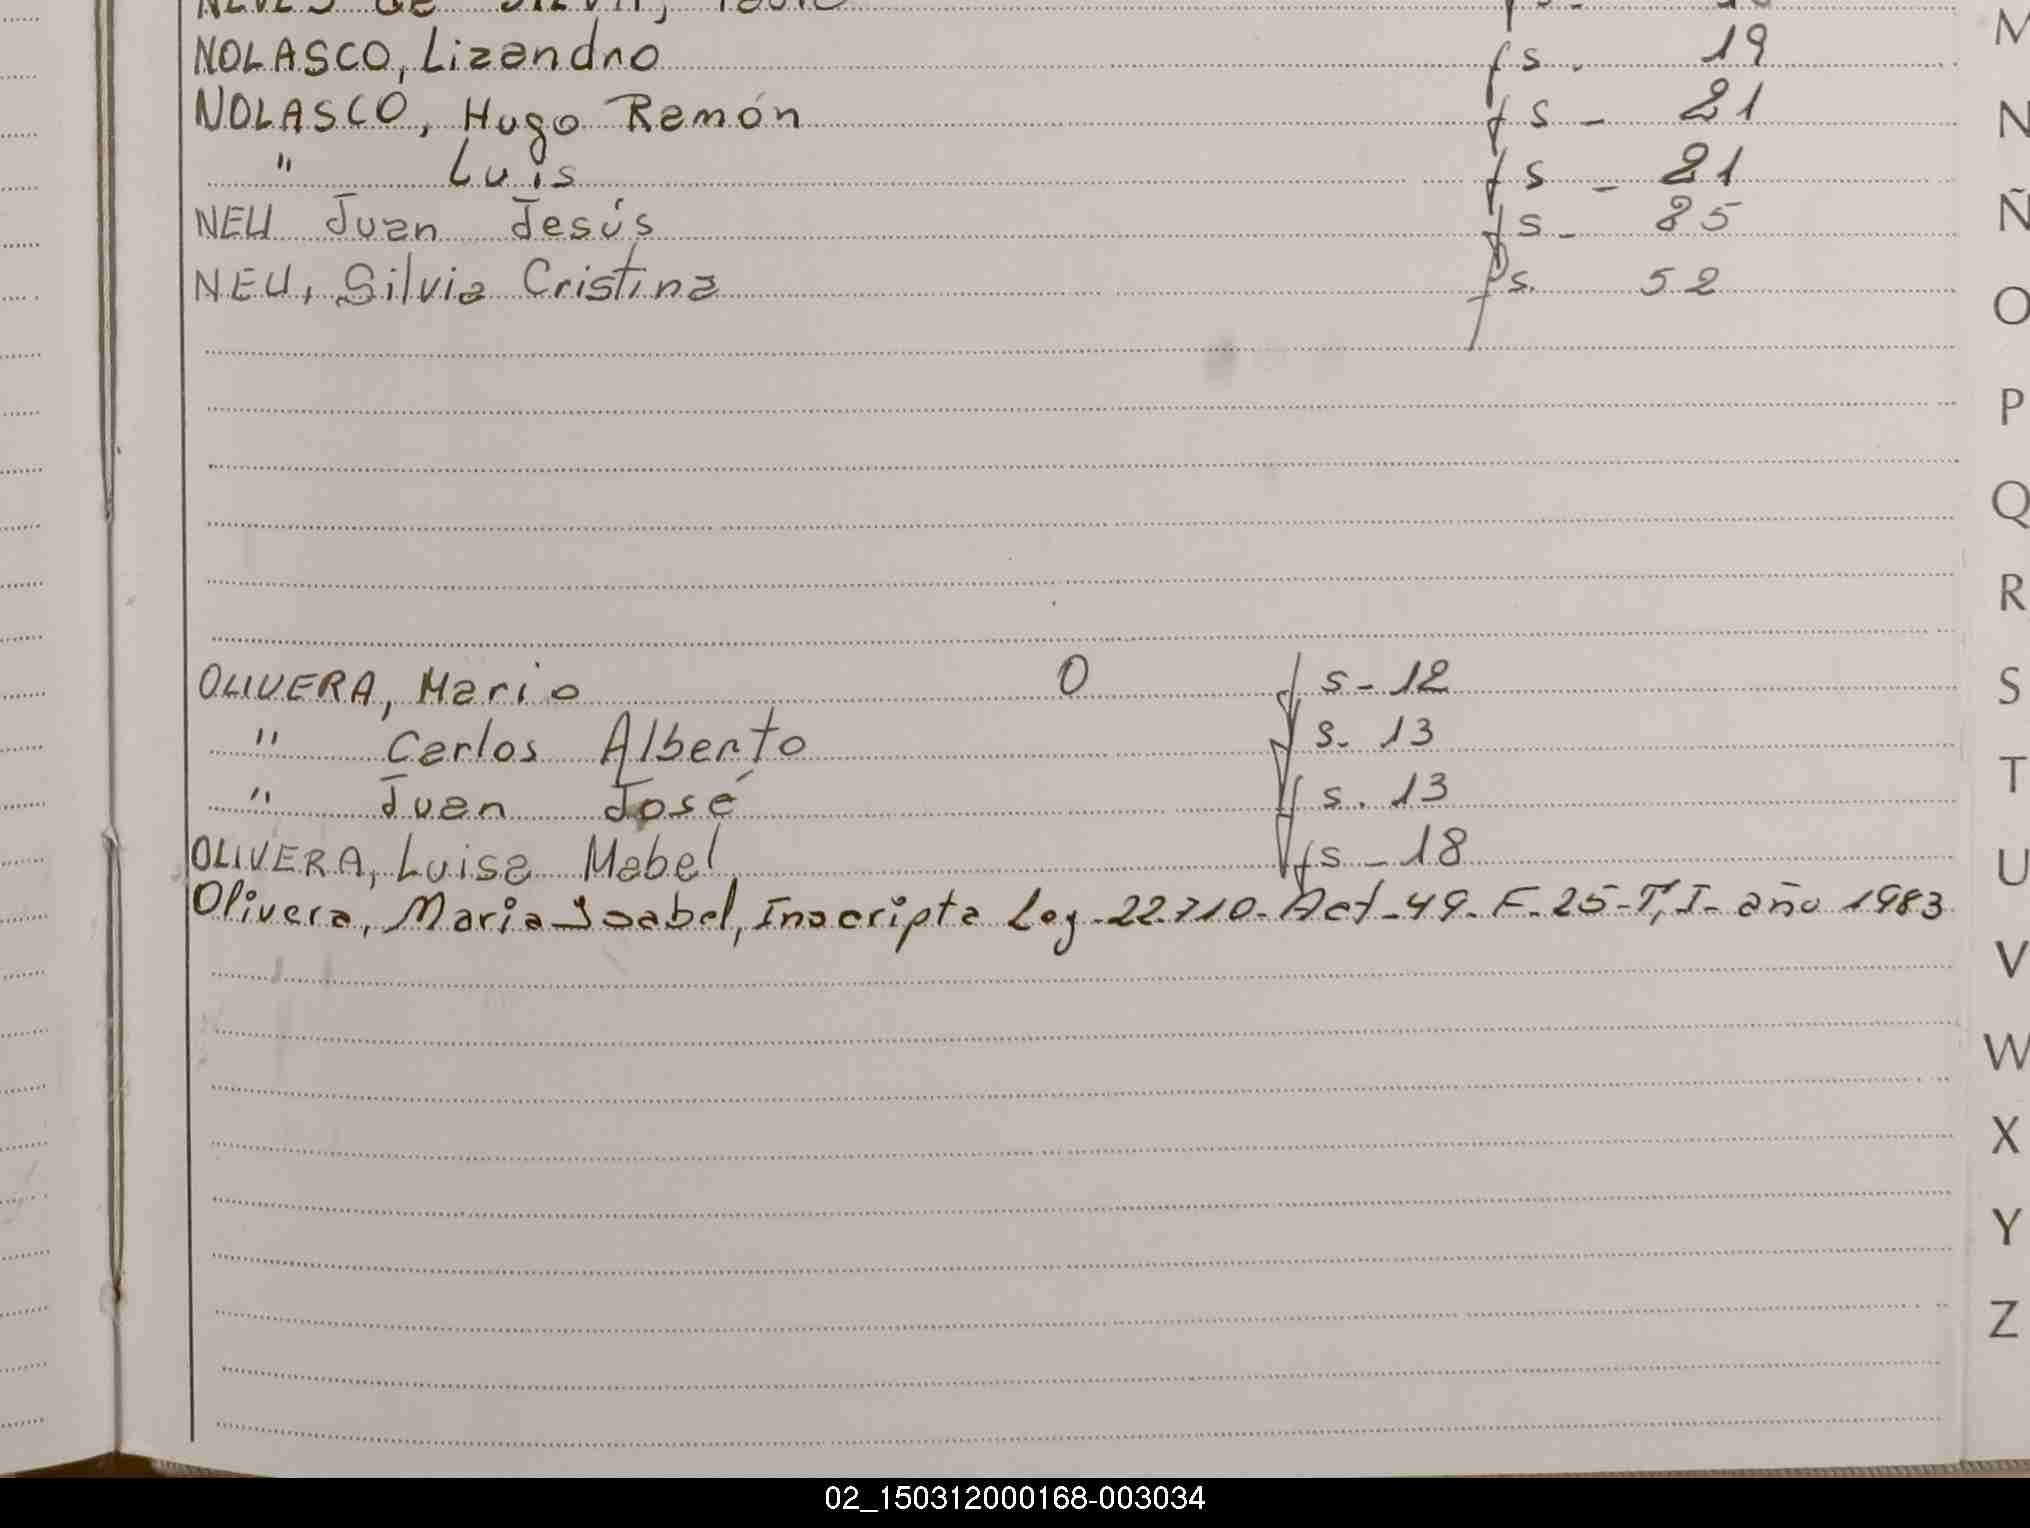 NOLASCO, Lizandro fs. 19
NOLASCO, Hugo Ramón fs - 21
" Luis fs - 21
NEU Juan Jesús fs - 85
NEU, Silvia Cristina fs. 52
O
OLIVERA, Mario fs - 12
" Carlos Alberto fs. 13
" Juan José fs. 13
OLIVERA, Luisa Mabel fs - 18
Olivera, Maria Isabel, Inscripta Ley - 22.710 - Act - 49 - F - 25 - T, I - año 1983
M
N
Ñ
O
P
Q
R
S
T
U
V
W
X
Y
Z
02_150312000168-003034